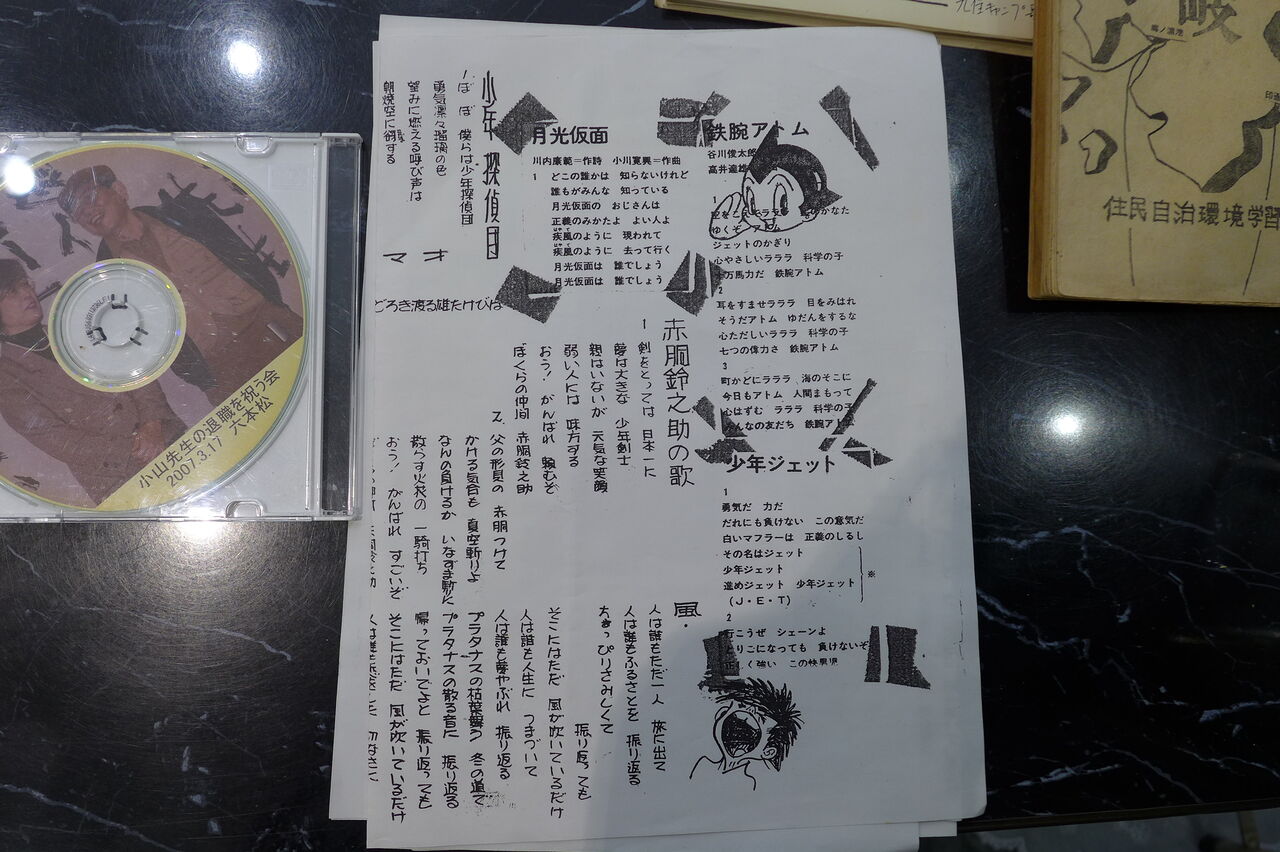 小山先生の退職を祝う会
2007.3.17 六本松
九住キャンプ
岐
住民自治環境学習
鉄腕アトム
谷川俊太郎
高井達雄
ゆくぞ アトム
ジェットのかぎり
心やさしいラララ 科学の子
十万馬力だ 鉄腕アトム
2
耳をすませラララ 目をみはれ
そうだアトム ゆだんをするな
心ただしいラララ 科学の子
七つの偉力さ 鉄腕アトム
3
町かどにラララ 海のそこに
今日もアトム 人間まもって
心はずむ ラララ 科学の子
みんなの友だち 鉄腕アトム
少年ジェット
1
勇気だ 力だ
だれにも負けない この意気だ
白いマフラーは 正義のしるし
その名はジェット
少年ジェット
進めジェット 少年ジェット
(J・E・T)
※
2
行こうぜ シェーンよ
とりこになっても 負けないぞ
正しく強い この快男児
月光仮面
川内康範=作詩 小川寛興=作曲
1 どこの誰かは 知らないけれど
誰もがみんな 知っている
月光仮面の おじさんは
正義のみかたよ よい人よ
疾風のように 現われて
疾風のように 去って行く
月光仮面は 誰でしょう
月光仮面は 誰でしょう
少年探偵団
1.ぼ ぼ 僕らは少年探偵団
勇気凛々瑠璃の色
望みに燃える呼び声は
朝焼空に谺する
マオ
どろき渡る雄たけびは
赤胴鈴之助の歌
1 剣をとっては 日本一に
夢は大きな 少年剣士
親はいないが 元気な笑顔
弱い人には 味方する
おう! がんばれ 頼むぞ
ぼくらの仲間 赤胴鈴之助
2、父の形見の 赤胴つけて
かける気合も 真空斬りよ
なんの負けるか いなずま斬に
散らす火花の 一騎打ち
おう! がんばれ すごいぞ
風・
人は誰もただ一人 旅に出て
人は誰もふるさとを 振り返る
ちょっぴりさみしくて
振り返っても
そこにはただ 風が吹いているだけ
人は誰も人生に つまづいて
人は誰も夢やぶれ 振り返る
プラタナスの枯葉舞う 冬の道で
プラタナスの散る音に 振り返る
帰っておいでよと 振り返っても
そこにはただ 風が吹いているだけ